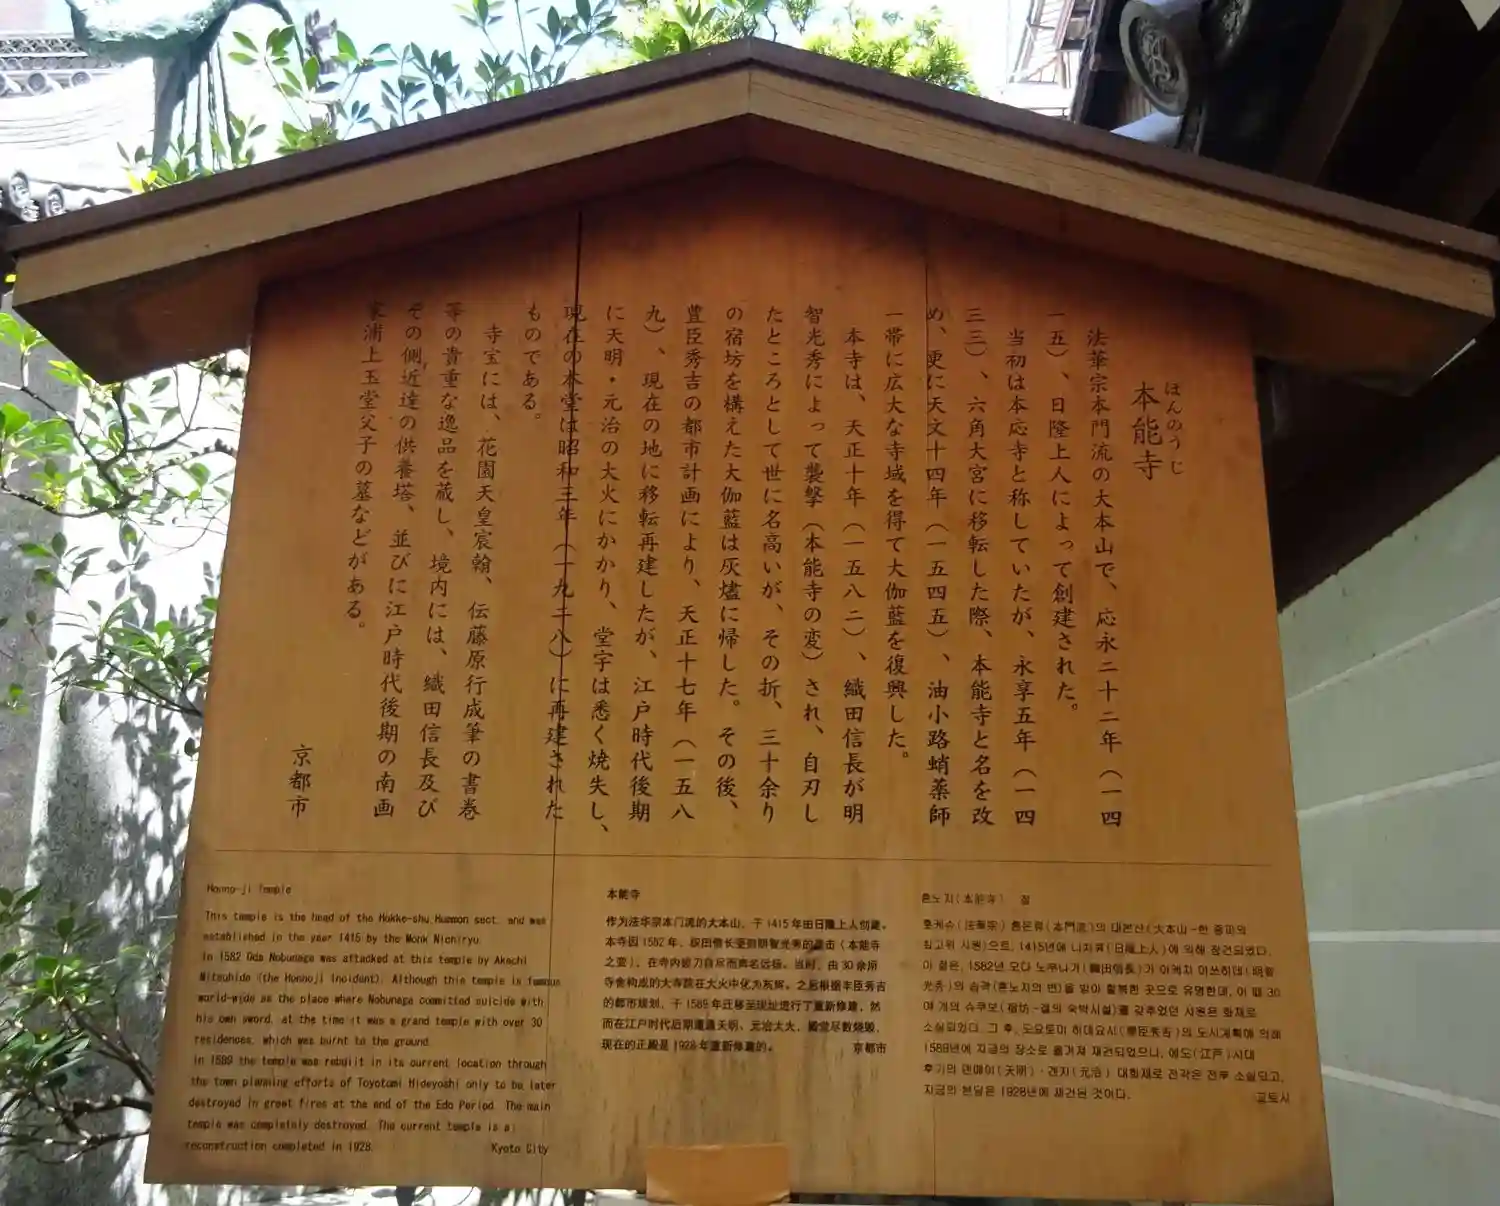 ほんのうじ
本能寺
法華宗本門流の大本山で、応永二十二年（一四
一五）、日隆上人によって創建された。
当初は本応寺と称していたが、永享五年（一四
三三）、六角大宮に移転した際、本能寺と名を改
め、更に天文十四年（一五四五）、油小路蛸薬師
一帯に広大な寺域を得て大伽藍を復興した。
本寺は、天正十年（一五八二）、織田信長が明
智光秀によって襲撃（本能寺の変）され、自刃し
たところとして世に名高いが、その折、三十余り
の宿坊を構えた大伽藍は灰燼に帰した。その後、
豊臣秀吉の都市計画により、天正十七年（一五八
九）、現在の地に移転再建したが、江戸時代後期
に天明・元治の大火にかかり、堂宇は悉く焼失し、
現在の本堂は昭和三年（一九二八）に再建された
ものである。
寺宝には、花園天皇宸翰、伝藤原行成筆の書巻
等の貴重な逸品を蔵し、境内には、織田信長及び
その側近達の供養塔、並びに江戸時代後期の南画
家浦上玉堂父子の墓などがある。
京都市
Honno-ji Temple
This temple is the head of the Hokke-shu Hummon sect, and was
established in the year 1415 by the Monk Nichiryu.
In 1582 Oda Nobunaga was attacked at this temple by Akechi
Mitsuhide (the Honnoji Incident). Although this temple is famous
world-wide as the place where Nobunaga committed suicide with
his own sword, at the time it was a grand temple with over 30
residences, which was burnt to the ground.
In 1589 the temple was rebuilt in its current location through
the town planning efforts of Toyotomi Hideyoshi only to be later
destroyed in great fires at the end of the Edo Period. The main
temple was completely destroyed. The current temple is a
reconstruction completed in 1928.
Kyoto City
本能寺
作为法华宗本门流的大本山，于1415年由日隆上人创建。
本寺因1582年，织田信长受到明智光秀的袭击（本能寺
之变），在寺内拔刀自尽而声名远扬。当时，由30余所
寺舍构成的大寺院在大火中化为灰烬。之后根据丰臣秀吉
的都市规划，于1589年迁移至现址进行了重新修建，然
而在江户时代后期遭遇天明、元治大火，殿堂尽数烧毁，
现在的正殿是1928年重新修建的。
京都市
혼노지(本能寺) 절
홋케슈(法華宗) 혼몬류(本門流)의 대본산(大本山-한 종파의
최고위 사원)으로, 1415년에 니치류(日隆上人)에 의해 창건되었다.
이 절은, 1582년 오다 노부나가(織田信長)가 아케치 미쓰히데(明智
光秀)의 습격(혼노지의 변)을 받아 할복한 곳으로 유명한데, 이 때 30
여 개의 슈쿠보(宿坊-절의 숙박시설)를 갖추었던 사원은 화재로
소실되었다. 그 후, 도요토미 히데요시(豊臣秀吉)의 도시계획에 의해
1589년에 지금의 장소로 옮겨져 재건되었으나, 에도(江戸)시대
후기의 덴메이(天明)·겐지(元治) 대화재로 전각은 전부 소실되고,
지금의 본당은 1928년에 재건된 것이다.
교토시